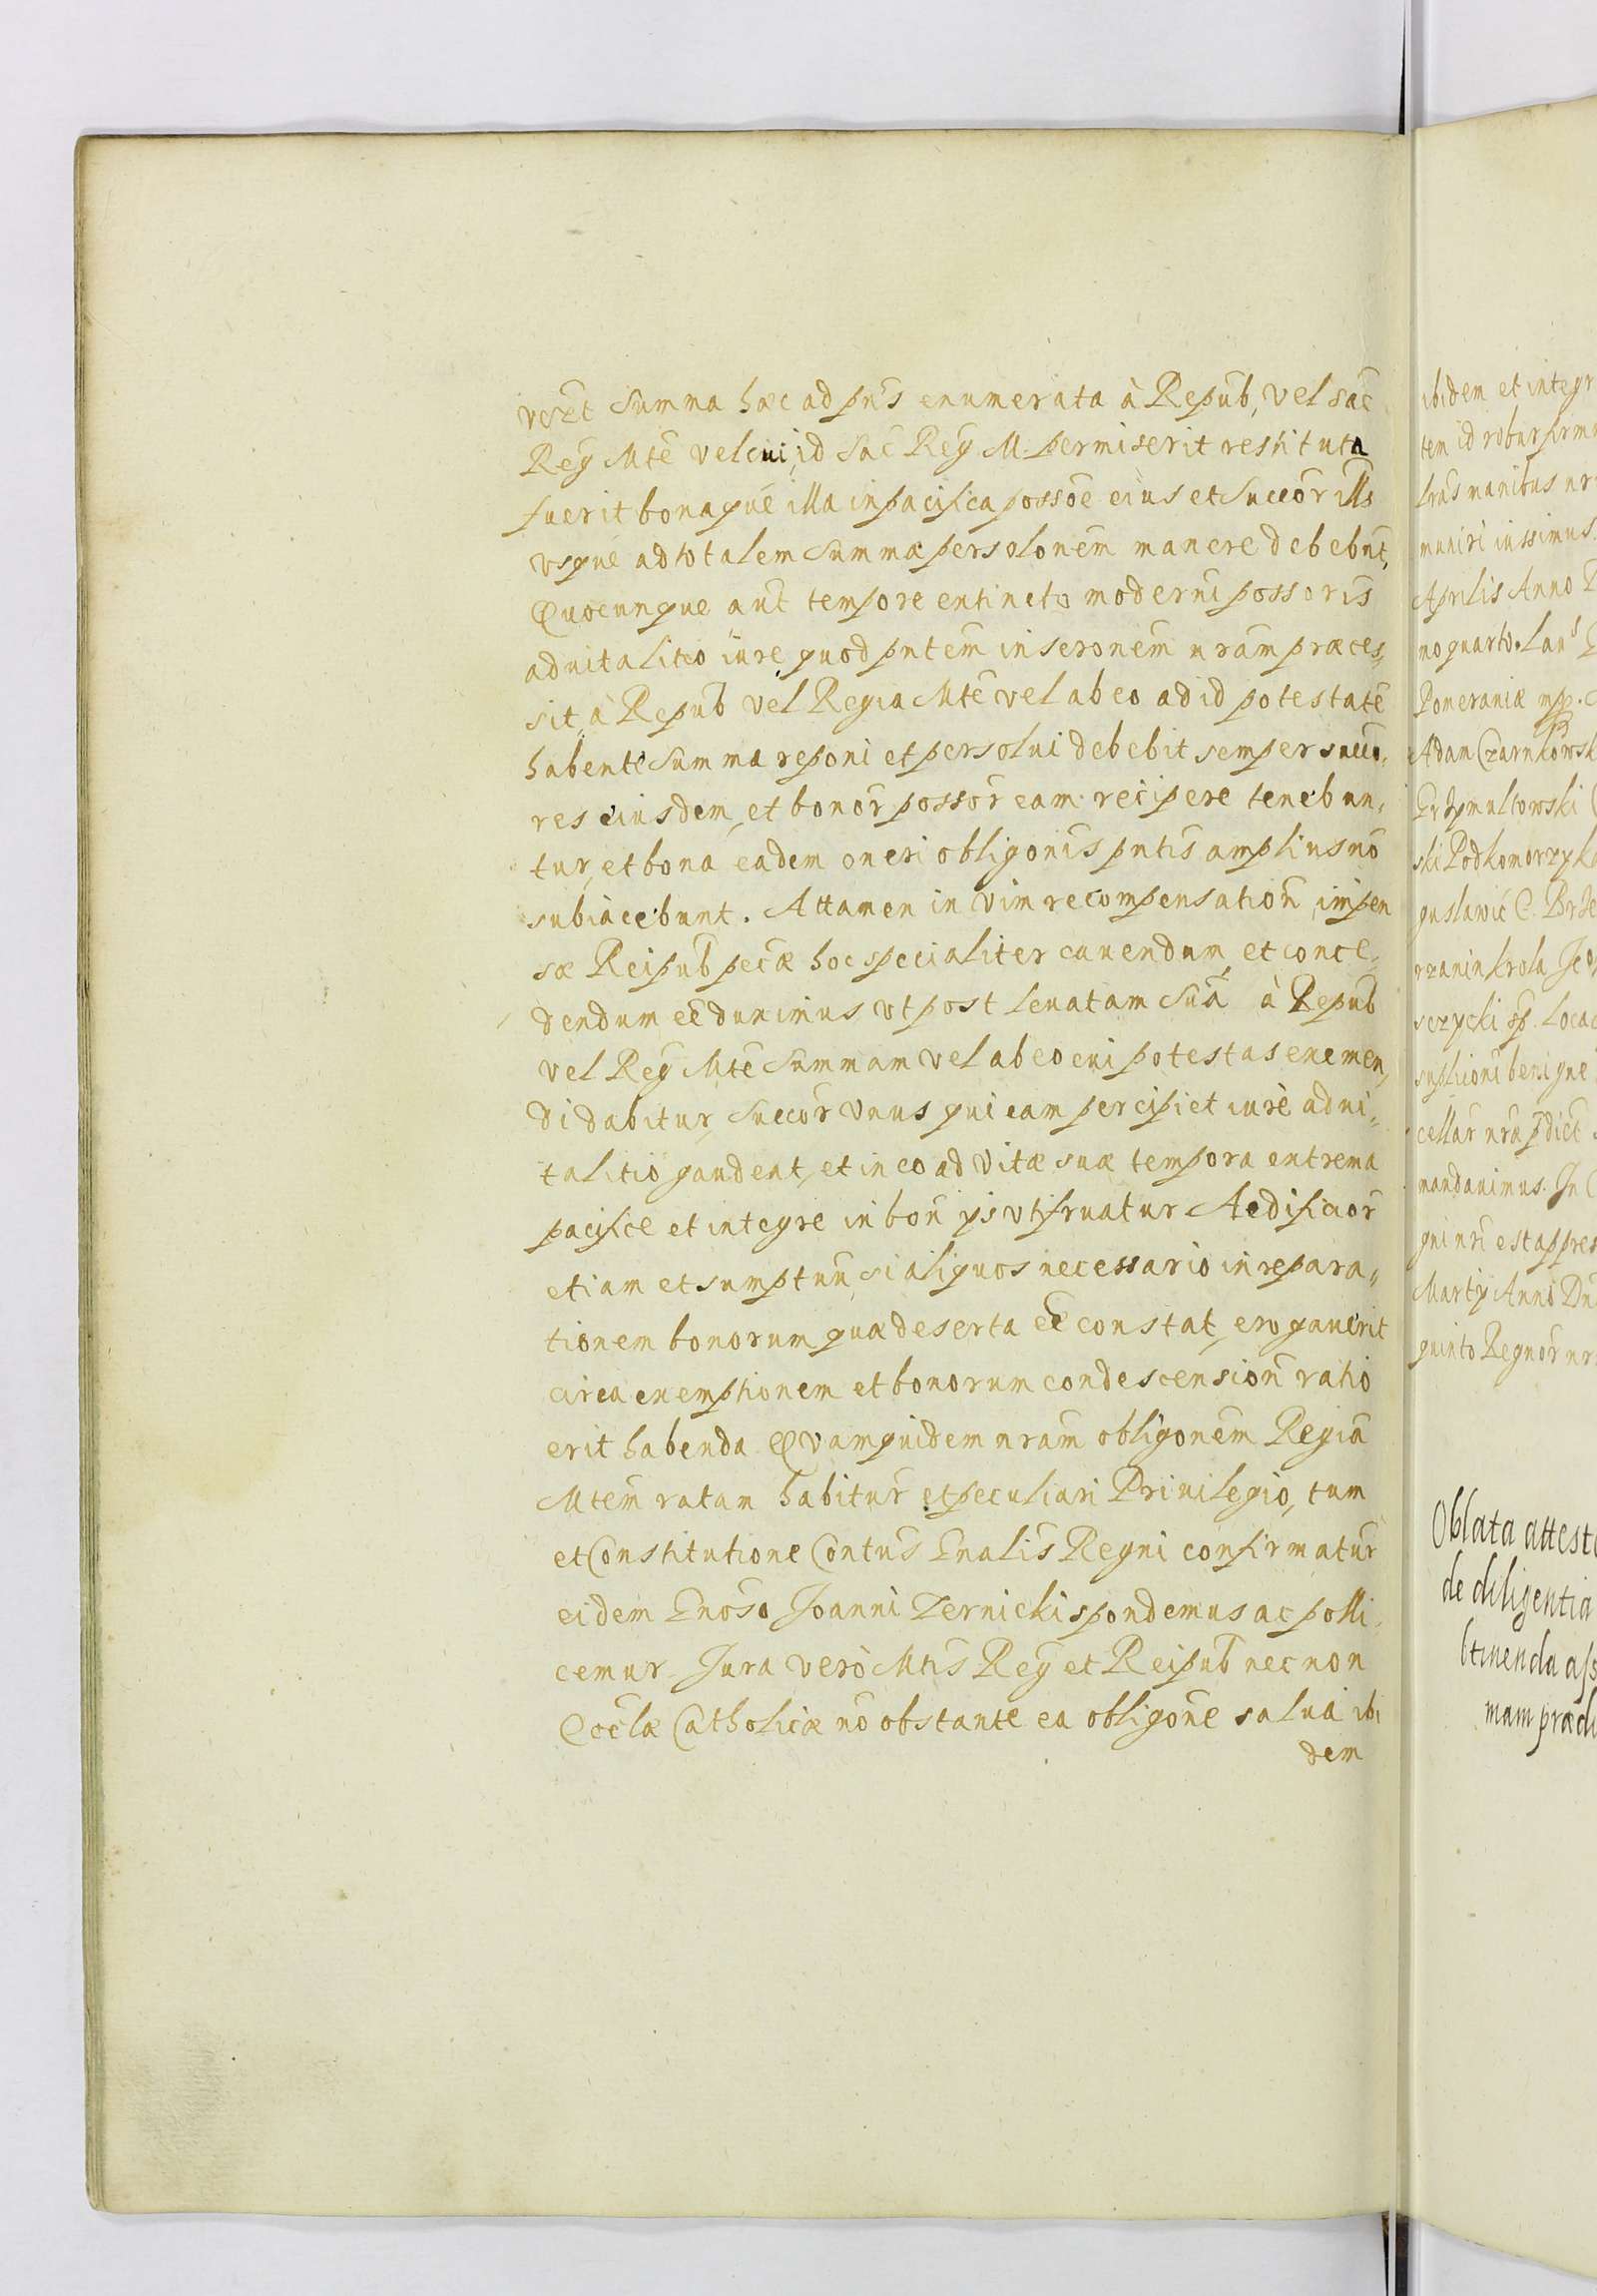 summa hæc ad pñs enumerata à Repub̃, vel sac̃
Reg̃ Mte̅ vel cui id Sac̃ Reg̃ M. permiserit restituta
fuerit bonaque illa in pacifica possõe eius et Succor̃ ills
vsque ad totalem Summæ persolonem̃ manere debebnt̃,
Quocunque aut̃ tempore extincto moderni possoris
aduitalitio iure, quod pñtem̃ inseronem̃ nram̃ præces„
sit, à Repub̃ vel Regia Mte̅ vel ab eo ad id potestate̅
habente Summa reponi et persolui debebit semper succo„
res eiusdem, et bonor̃ possor̃ eam recipere tenebun„
tur, et bona eadem oneri obligonis̃ pñtis ampliusno̅
subiacebunt. Attamen in vim recompensation̅ impen
sæ Reipub̃ pec̃æ hoc specialiter cauendum, et conce„
dendum ee̅ duximus vt post leuatam Sua̅ à Repub̃
vel Reg̃ Mte̅ Summam vel ab eo cui potestas exemen„
di dabitur, Succor̃ vnus qui eam percipiet iure adui„
talitio gaudeat, et in eo ad vitæ suæ tempora extrema
pacifice et integre in bon̅ ys vti fruatur Aedificior̃
etiam et sumptuu̅, si aliquos necessario in repara„
tionem bonorum quæ deserta ee̅ constat, erogauerit
circa exemptionem et bonorum condescension̅ ratio
erit habenda. Quamquidem nram̃ obligonem̃ Regia̅
Mtem̃ ratam habitur̃ et peculiari Priuilegio, tum
et Constitutione Contus̃ Gnalis̃ Regni confirmatur̃
eidem Gnoso̅ Joanni Zernicki spondemus ac polli„
cemur. Jura verò Mtis̃ Reg̃ et Reipub̃ nec non
Eccl̃æ Catholicæ no̅ obstante ea obligone̅ salua ibi
dem
ibidem et integr
tem id robur firm
lras̃ manibus nr
muniri iussimus.
Aprilis Anno
no quarto. Lau
Pomeraniæ mp.
Adam Czarnkowsk
Przymultowski
ski Podkomorzyk
guslawic C. Brze
rzanin krola Je
sczycki sp. Locac
supliconi benigne
cellar̃ nræ pdict̃
mandauimus. In C
gni nri̅ est appres
Martÿ Anno Dn̅
quinto Regnor̃ nr
Oblata attest
de diligentia
btinenda ass
mam prædi